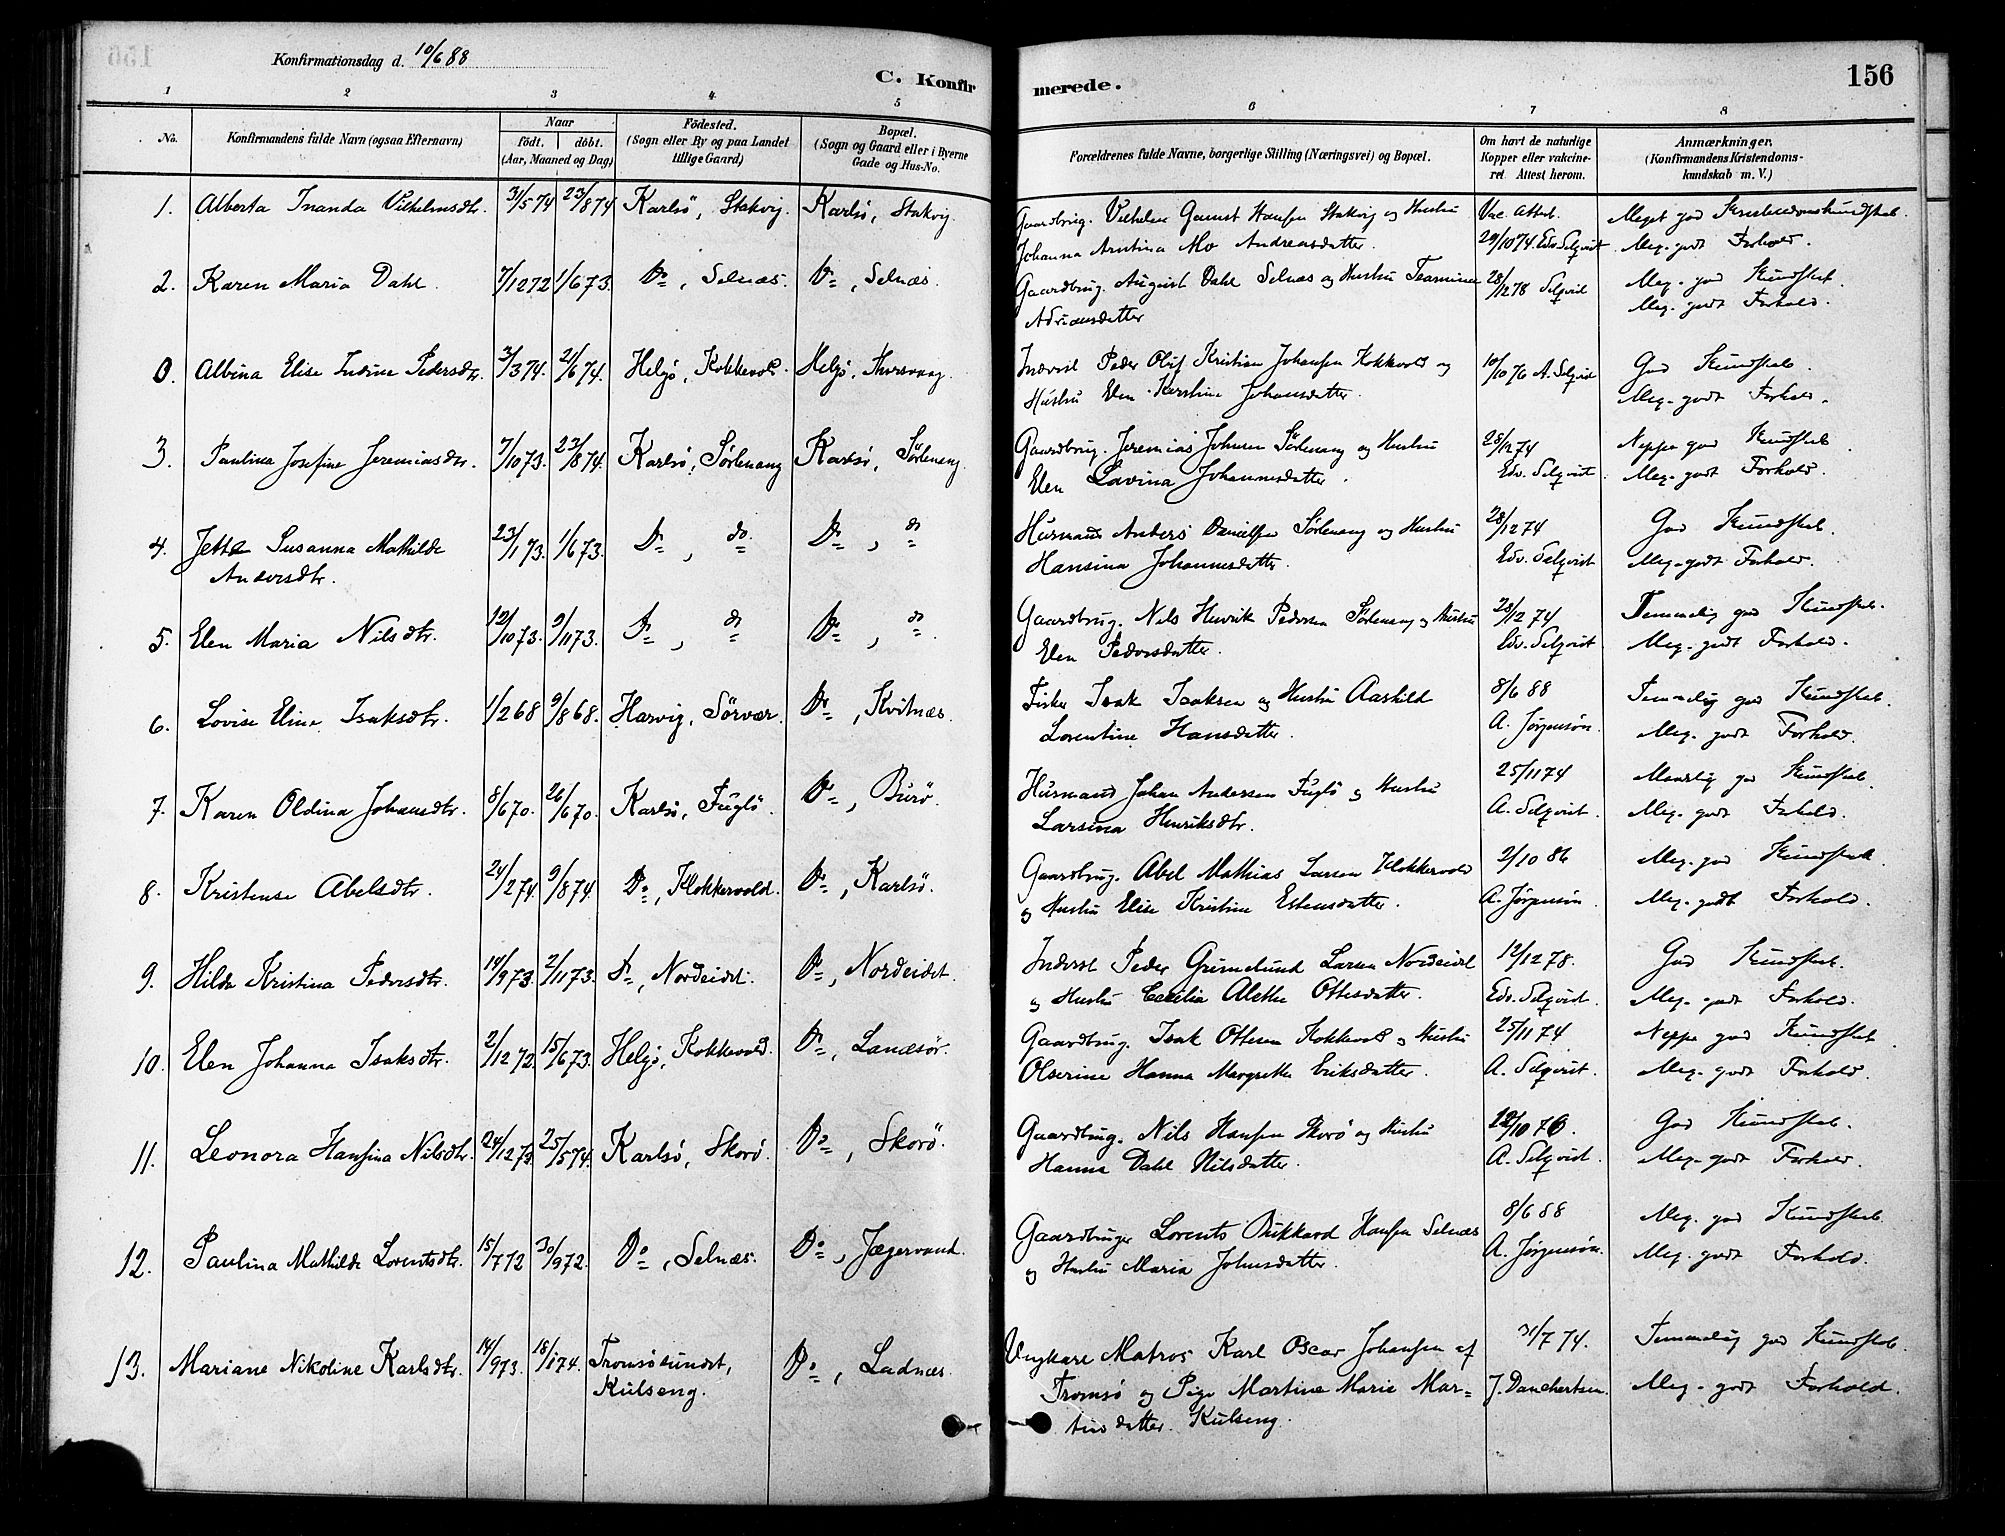 Konfirmationsdag d. 10/6 88
C. Konfirmerede.
156
1 2 3 4 5 6 7 8
No. Konfirmandens fulde Navn (ogsaa Efternavn) Naar födt. döbt. (Aar, Maaned og Dag) Födested. (Sogn eller By og paa Landet tillige Gaard) Bopæl. (Sogn og Gaard eller i Byerne Gade og Hus-No. Forældrenes fulde Navne, borgerlige Stilling (Næringsvei) og Bopæl. Om havt de naturlige Kopper eller vakcineret. Attest herom. Anmærkninger. (Konfirmandens Kristendomskundskab m. V.)
1. Alberta Inanda Vilhelmsdtr. 31/5 74 23/8 74 Karlsö, Stakvig. Karlsö, Stakvig. Gaardbrug. Vilhelm Gamst Hansen Stakvig og Hustru Vac. Attest. Meget god Kristendomskundskab.
Johanna Arntina Mo Andreasdatter. 29/10 74 Edv. Selqvist Meg. godt Forhold.
2. Karen Maria Dahl. 7/12 72 1/6 73. Do, Selnæs. Do, Selnæs. Gaardbrug. August Dahl Selnæs og Hustru 28/12 78 Selqvist Meg. god Kundskab.
Adriansdatter Meg. godt Forhold.
0. Albina Elise Indrine Pedersdtr. 3/3 74. 21/6 74. Helgö, Kokkevold. Helgö, Thorsvaag. Inderst Peder Oluf Kristian Johansen Kokkvold og 10/10 76 A. Selqvist God Kundskab.
Hustru Elen Kerstine Johansdatter. Meg. godt Forhold.
3. Paulina Josefine Jeremiasdtr. 7/10 73. 23/8 74. Karlsö, Sörlenang Karlsö, Sörlenang. Gaardbrug. Jeremias Johnsen Sörlenang og Hustru 28/12 74 Neppe god Kundskab.
Elen Lavina Johannesdatter. Edv. Selqvist. Meg. godt Forhold.
4. Jetta Susanna Mathilde 23/1 73. 1/6 73. Do, do. Do, do Husmand Anders Danielsen Sörlenang og Hustru 28/12 74 God Kundskab.
Andersdtr. Hansina Johannesdatter. Edv. Selqvist Meg. godt Forhold.
5. Elen Maria Nilsdtr. 12/10 73. 9/11 73. Do, do Do, do. Gaardbrug. Nils Henrik Pedersen Sörlenang og Hustru 28/12 74 Temmelig god Kundskab.
Elen Pedersdatter. Edv. Selqvist Meg. godt Forhold.
6. Lovise Eline Isaksdtr. 1/2 68 9/8 68. Hasvig, Sörvær. Do, Kvitnæs. Fisker Isak Isaksen og Hustru Aashild 8/6 88 Temmelig god Kundskab.
Lorentine Hansdatter. A. Jörgensön. Meg. godt Forhold.
7. Karen Oldina Johansdtr. 8/6 70. 26/6 70. Karlsö, Fuglö. Do, Burö. Husmand Johan Andersen Fuglö og Hustru 25/11 74 Maadelig god Kundskab.
Larsina Henriksdtr. A. Selqvist. Meg. godt Forhold.
8. Kristense Abelsdtr. 24/2 74. 9/8 74. Do, Klokkervold. Do, Karlsö. Gaardbrug. Abel Mathias Larsen Klokkervold 2/10 86 Meg. god Kundskab.
og Hustru Elise Kristine Estensdatter. A. Jörgensön Meg. godt Forhold.
9. Hilda Kristina Pedersdtr. 14/9 73. 2/11 73. Do, Nordeidet. Do, Nordeidet. Inderst Peder Grönelund Larsen Nordeidet 12/12 78. God Kundskab.
og Hustru Cecilia Alethe Ottesdatter. Edv. Selqvist. Meg. godt Forhold.
10. Elen Johanna Isaksdtr. 2/12 72. 15/6 73. Helgö, Kokkevold. Do, Landsör. Gaardbrug. Isak Ottesen Kokkvold og Hustru 25/11 74 Neppe god Kundskab.
Olserine Hanna Margrethe Eriksdatter. A. Selqvist. Meg. godt Forhold.
11. Leonora Hansina Nilsdtr. 24/12 73. 25/5 74. Karlsö, Skorö. Do, Skorö. Gaardbrug. Nils Hansen Skorö og Hustru 12/10 76. God Kundskab.
Hanna Dahl Nilsdatter. A. Selqvist. Meg. godt Forhold.
12. Paulina Mathilde Lorentsdtr. 15/7 72 30/9 72. Do, Selnæs. Do, Jægervand. Gaardbruger Lorents Hansen Selnæs 8/6 88 Meg. god Kundskab.
og Hustru Maria Johnsdatter. A. Jörgensön. Meg. godt Forhold.
13. Mariane Nikoline Karlsdtr. 14/9 73. 18/1 74. Tromsösundet, Do, Ladnæs. Ungkarl Matros Karl Oscar Johansen af 31/7 74. Temmelig god Kundskab.
Kulseng. Tromsö og Pige Martine Marie Mar= J. Danchertsen. Meg. godt Forhold.
tinsdatter Kulseng.